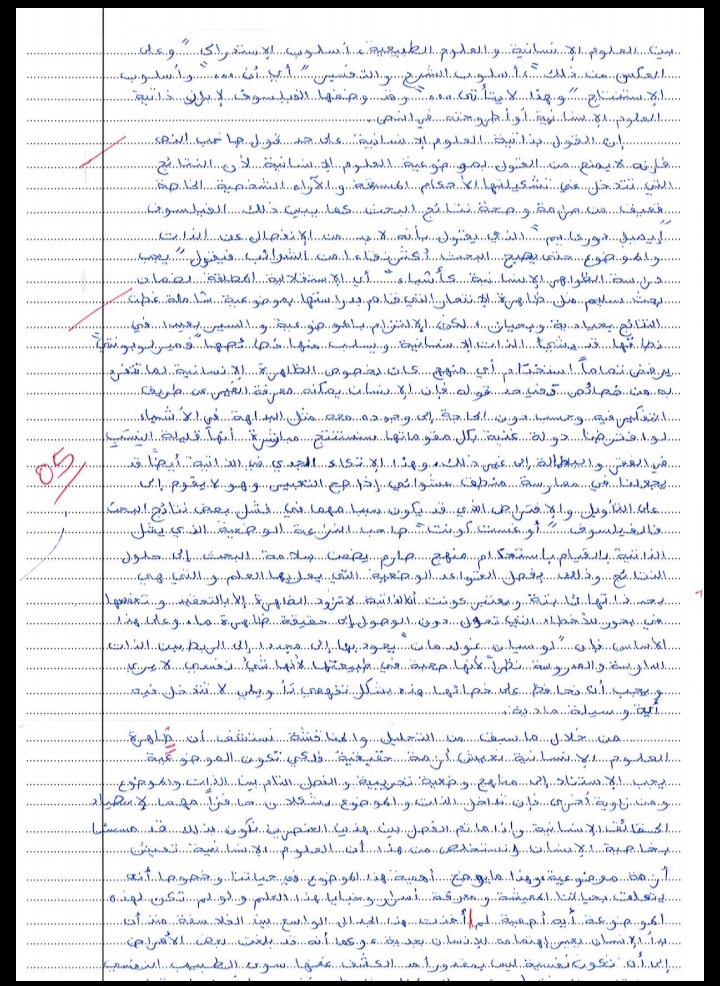 بين العلوم الإنسانية والعلوم الطبيعية، أسلوب الإستقرائي "وعلى
العكس من ذلك"، أسلوب الشرح والتفسير "أي أن ...." وأسلوب
الإستنتاج "وهذا لا يتأتى ...." وقد وضفها الفيلسوف لإبراز ذاتية
العلوم الإنسانية أو أطروحته في النص.
إن القول بذاتية العلوم الإنسانية على حد قول صاحب النص
فإنه لا يمنع من القول بموضوعية العلوم الإنسانية لأن النتائج
التي تتدخل في تشكيلتها الأحكام المسبقة والآراء الشخصية الخاصة
تضعف من صرامة وصحة نتائج البحث كما يبين ذلك الفيلسوف
"إيميل دوركايم" الذي يقول بأنه لا بد من الإنفصال عن الذات
والموضوع حتى يصبح البحث أكثر نقاءا من الشوائب فيقول "يجب
دراسة الظواهر الإنسانية كأشياء" أي الإستقلالية المطلقة لضمان
بحث سليم مثل ظاهرة الإنتحار التي قام بدراستها بموضوعية شاملة
النتائج بحيادية ، لكن الإلتزام بالموضوعية والسير بعيدا في
نطاقها قد يشيئ الذات الإنسانية ويسلب منها خصائصها "فميرلوبونتي"
يرفض تماماً استخدام أي منهج كان بخصوص الظاهرة الإنسانية لما تنفرد
به من خصائص ففي حد قوله فإن الإنسان يمكنه معرفة الغير عن طريق
التفكير فيه وحسب دون الحاجة إلى وجوده معه مثل البداهة في الأشياء
لو افترضنا دولة غنية بكل مقوماتها سنستنتج مباشرة أنها قليلة النسب
في الفقر والبطالة إلى غير ذلك، وهذا الإتكاء الجدي في الذاتية أيضاً قد
يجعلنا في ممارسة منطق عشوائي إذا صح التعبير وهو لا يقوم إلى
على التأويل والإفتراض الذي قد يكون سببا مهما في فشل بعض نتائج البحث
فالفيلسوف "أوغست كونت" صاحب النزعة الوضعية الذي يقل
الذاتية بالقيام باستحكام منهج صارم يضمن سلامة البحث إلى حلول
النتائج وذلك بفضل القواعد الوضعية التي يعلبها العلم والتي هي
بحد ذاتها ثابتة ويعتبر كونت أن الذاتية لا تزود الظاهرة إلا بالتعقيد و تقعصها
في بحور للأخطاء التي تحول دون الوصول إلى حقيقة ظاهرة ما، وعلى هذا
الأساس فإن "لوسيان غولدمان" يعود بها إلى مجددا إلى الربط بين الذات
الدارسة والمدروسة نظراً لأنها صعبة في طبيعتها لأنها شيئ نفسي لا يرى
ويجب أن نحافظ على خصائها هذه بشكل تفهمي تأويلي لا تتدخل فيه
أية وسيلة مادية.
من خلال ما سبق من التحليل والمناقشة نستشف أن ظاهرة
العلوم الإنسانية تعيش أزمة حقيقية فلكي تكون الموضوعية
يجب الإستناد إلى مناهج وضعية تجريبية والفصل التام بين الذات والموضوع
ومن زاوية أخرى فإن تداخل الذات والموضوع يشكلان حافزاً مهما لإصطياد
الحقائق الإنسانية وإذا ما تم الفصل بين هذين العنصرين نكون بذلك قد مسسنا
بخاصية الإنسان ونستخلص من هذا أن العلوم الإنسانية تعيش
أزمة موضوعية، وهذا ما يوضح أهمية هذا الموضوع في حياتنا وخصوصا أنه
يتعلق بحياتنا المعيشة ومعرفة أسرار وخبايا هذا العلم ولو لم تكن لهذه
الموضوعة أية أهمية لم أخذت هذا الجدال الواسع بين الفلاسفة منذ أن
بدأ الإنسان يعير إهتمامه للإنسان بجدية، وكما أنه قد بلغت بعض الأمراض
إلى أن تكون نفسية ليس بمقدور أحد الكشف عنها سوى الطبيب النفسي
05